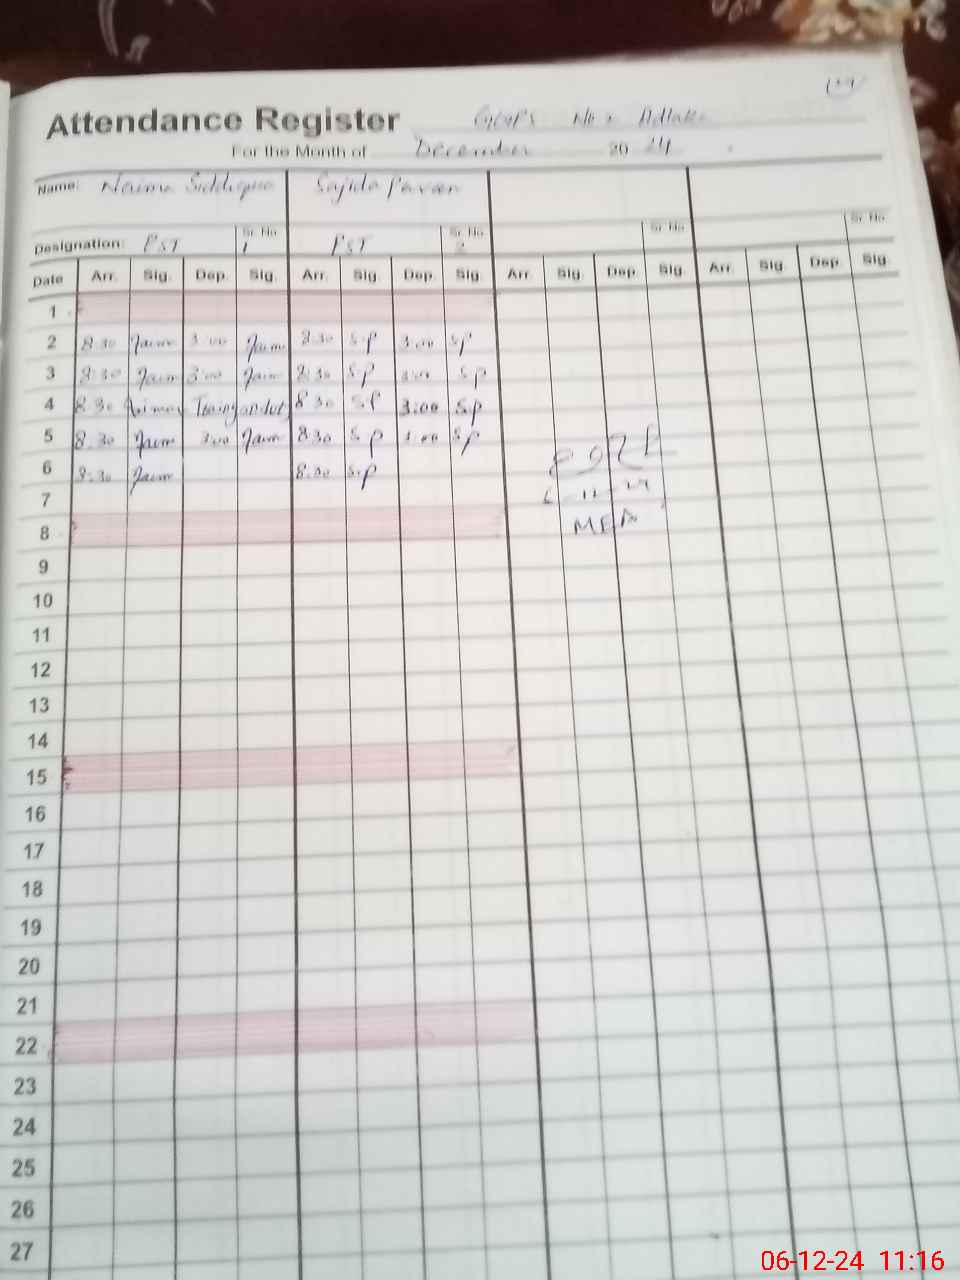 Attendance Register GGPS No 2 Adlaka
For the Month of December 2024
Name: Naima Siddiqua Sajida Parveen
Sr. No. Sr. No. Sr. No. Sr. No.
Designation: PST 1 PST 2
Date Arr. Sig. Dep. Sig. Arr. Sig. Dep. Sig. Arr. Sig. Dep. Sig. Arr. Sig. Dep. Sig.
1
2 8:30 3:00 8:30 S.P 3:00 S.P
3 8:30 3:00 8:30 S.P 3:00 S.P
4 8:30 8:30 S.P 3:00 S.P
5 8:30 3:00 8:30 S.P 3:00 S.P
6 8:30 8:30 S.P
7
8 MEA
9
10
11
12
13
14
15
16
17
18
19
20
21
22
23
24
25
26
27
06-12-24 11:16